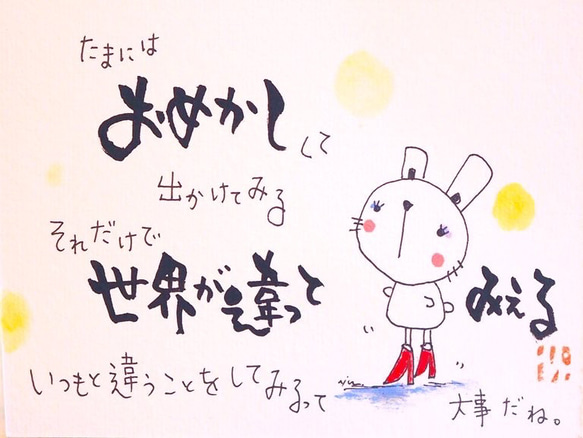 たまには
おめかしして
出かけてみる
それだけで
世界が違って みえる
いつもと違うことをしてみるって
大事だね。